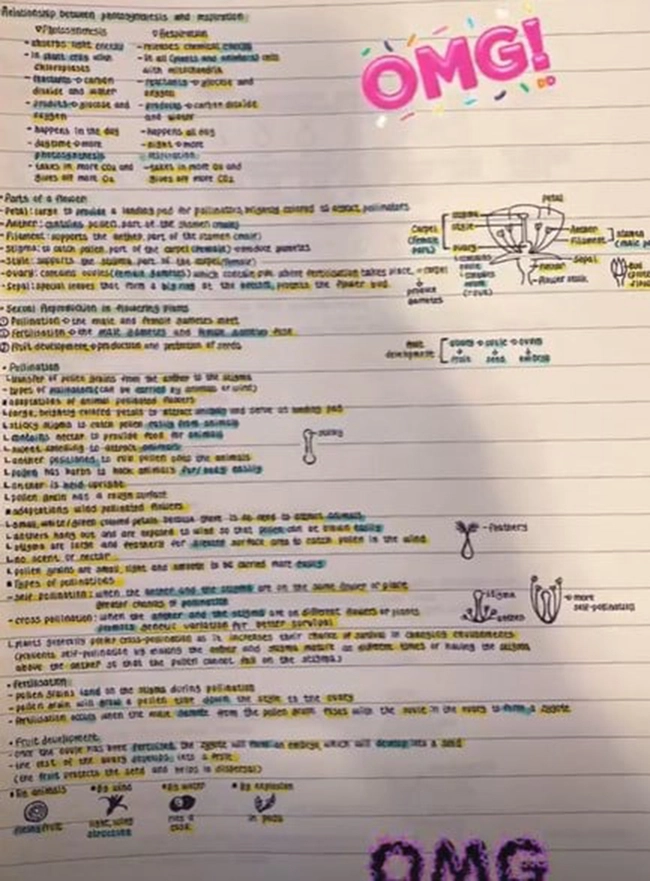 Relationship between photosynthesis and respiration:
Photosynthesis
Respiration
- absorbs light energy
- releases chemical energy
- in plant cells with chloroplasts
- in all (plants and animals) cells with mitochondria
- reactants → carbon dioxide and water
- reactants → glucose and oxygen
- products → glucose and oxygen
- products → carbon dioxide and water
- happens in the day
- happens all day
- daytime → more photosynthesis
- night → more respiration
- takes in more CO2 and gives off more O2
- takes in more O2 and gives off more CO2
OMG!
• Parts of a flower
- Petal: large to provide a landing pad for pollinators, brightly colored to attract pollinators
- Anther: contains pollen, part of the stamen (male)
- Filament: supports the anther, part of the stamen (male)
- Stigma: to catch pollen, part of the carpel (female)
- Style: supports the stigma, part of the carpel (female)
- Ovary: contains ovules (female gametes) which contain ova where fertilisation takes place
- Sepal: special leaves that form a big ring at the bottom, protects the flower bud
Petal
stigma
style
ovary
Carpel (female part)
Anther
Filament
stamen
Sepal
flower stalk
produce gametes
• Sexual Reproduction in flowering plants
① Pollination → the male and female gametes meet
② Fertilisation → the male gametes and female gametes fuse
③ Fruit development → production and protection of seeds
fruit development
ovary → ovule → ovum
fruit seed embryo
• Pollination
transfer of pollen grains from the anther to the stigma
- types of pollinators (can be carried by animals or wind)
adaptations of animal pollinated flowers
large, brightly colored petals to attract animals and serve as landing pad
sticky stigma to catch pollen easily from animals
contains nectar to provide food for animals
sweet smelling to attract animals
anther positioned to rub pollen onto the animals
pollen has barbs to hook animals fur/body easily
anther is held upright
pollen grain has a rough surface
sticky
adaptations wind pollinated flowers
small, white/green colored petals because there is no need to attract animals
anthers hang out and are exposed to wind so that pollen can be blown easily
stigma are large and feathery for greater surface area to catch pollen in the wind
no scent or nectar
pollen grains are small, light and smooth to be carried more easily
- feathers
Types of pollinations
- self pollination: when the anther and the stigma are on the same flower or plant
greater chances of pollination
- cross pollination: when the anther and the stigma are on different flowers or plants
promote genetic variation for better survival
stigma
anther
more self-pollination
plants generally prefer cross-pollination as it increases their chance of survival in changing environments
(prevents self-pollination by making the anther and stigma mature at different times or having the stigma
above the anther so that the pollen cannot fall on the stigma)
• Fertilisation:
- pollen grains land on the stigma during pollination
- pollen grain will grow a pollen tube down the style to the ovary
- fertilisation occurs when the male gamete from the pollen grain fuses with the ovule in the ovary to form a zygote
• Fruit development:
- once the ovule has been fertilised, the zygote will form an embryo which will develop into a seed
- the rest of the ovary develops into a fruit
(the fruit protects the seed and helps in dispersal)
• By animals
• By wind
• By water
• By explosion
fruit
light, wing
has a
in pods
OMG